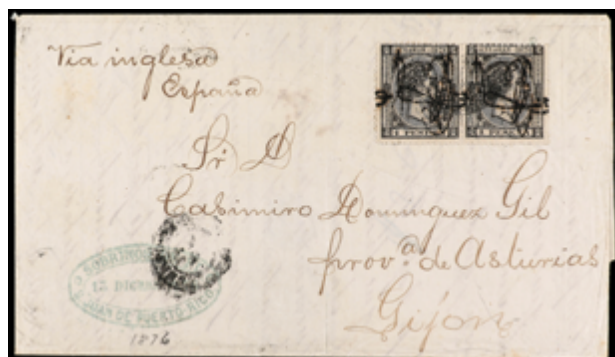 Via inglesa
España
Sr D
Casimiro Dominguez Gil
prov.ª de Asturias
Gijon
13 DICI
S. JUAN DE PUERTO RICO
1876